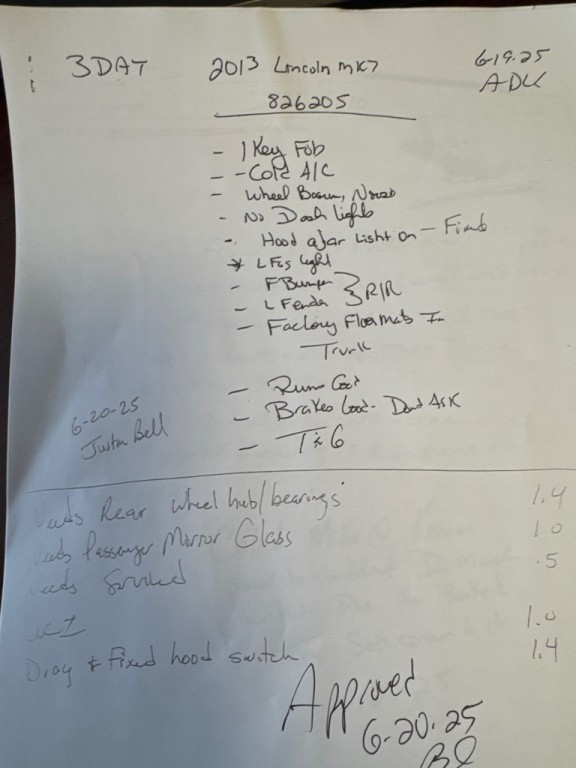 3DAT 2013 Lincoln MKZ 6-19.25
826205
- 1 Key Fob
- - Cold A/C
- Wheel
- No Dash lights
- Hood ajar Light on - Fixed
* L Fog light
- F Bumper } R/R
- L Fender
- Factory Floormats In
Trunk
- Runs Good
- Brakes Good - Dont Ask
-
6-20-25
Justin Bell
Needs Rear wheel hub/bearings 1.4
Needs Passenger Mirror Glass 1.0
Needs Serviced .5
UCI 1.0
Diag & Fixed hood switch 1.4
Approved
6-20.25